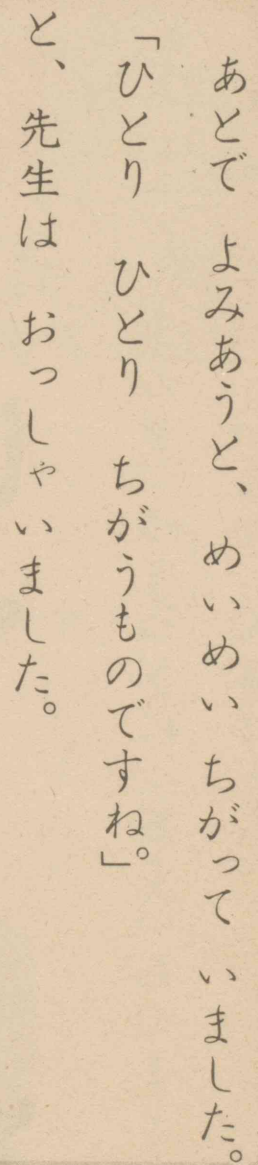 あとで よみあうと、 めいめい ちがって いました。
「ひとり ひとり ちがうものですね。」
と、 先生は おっしゃいました。